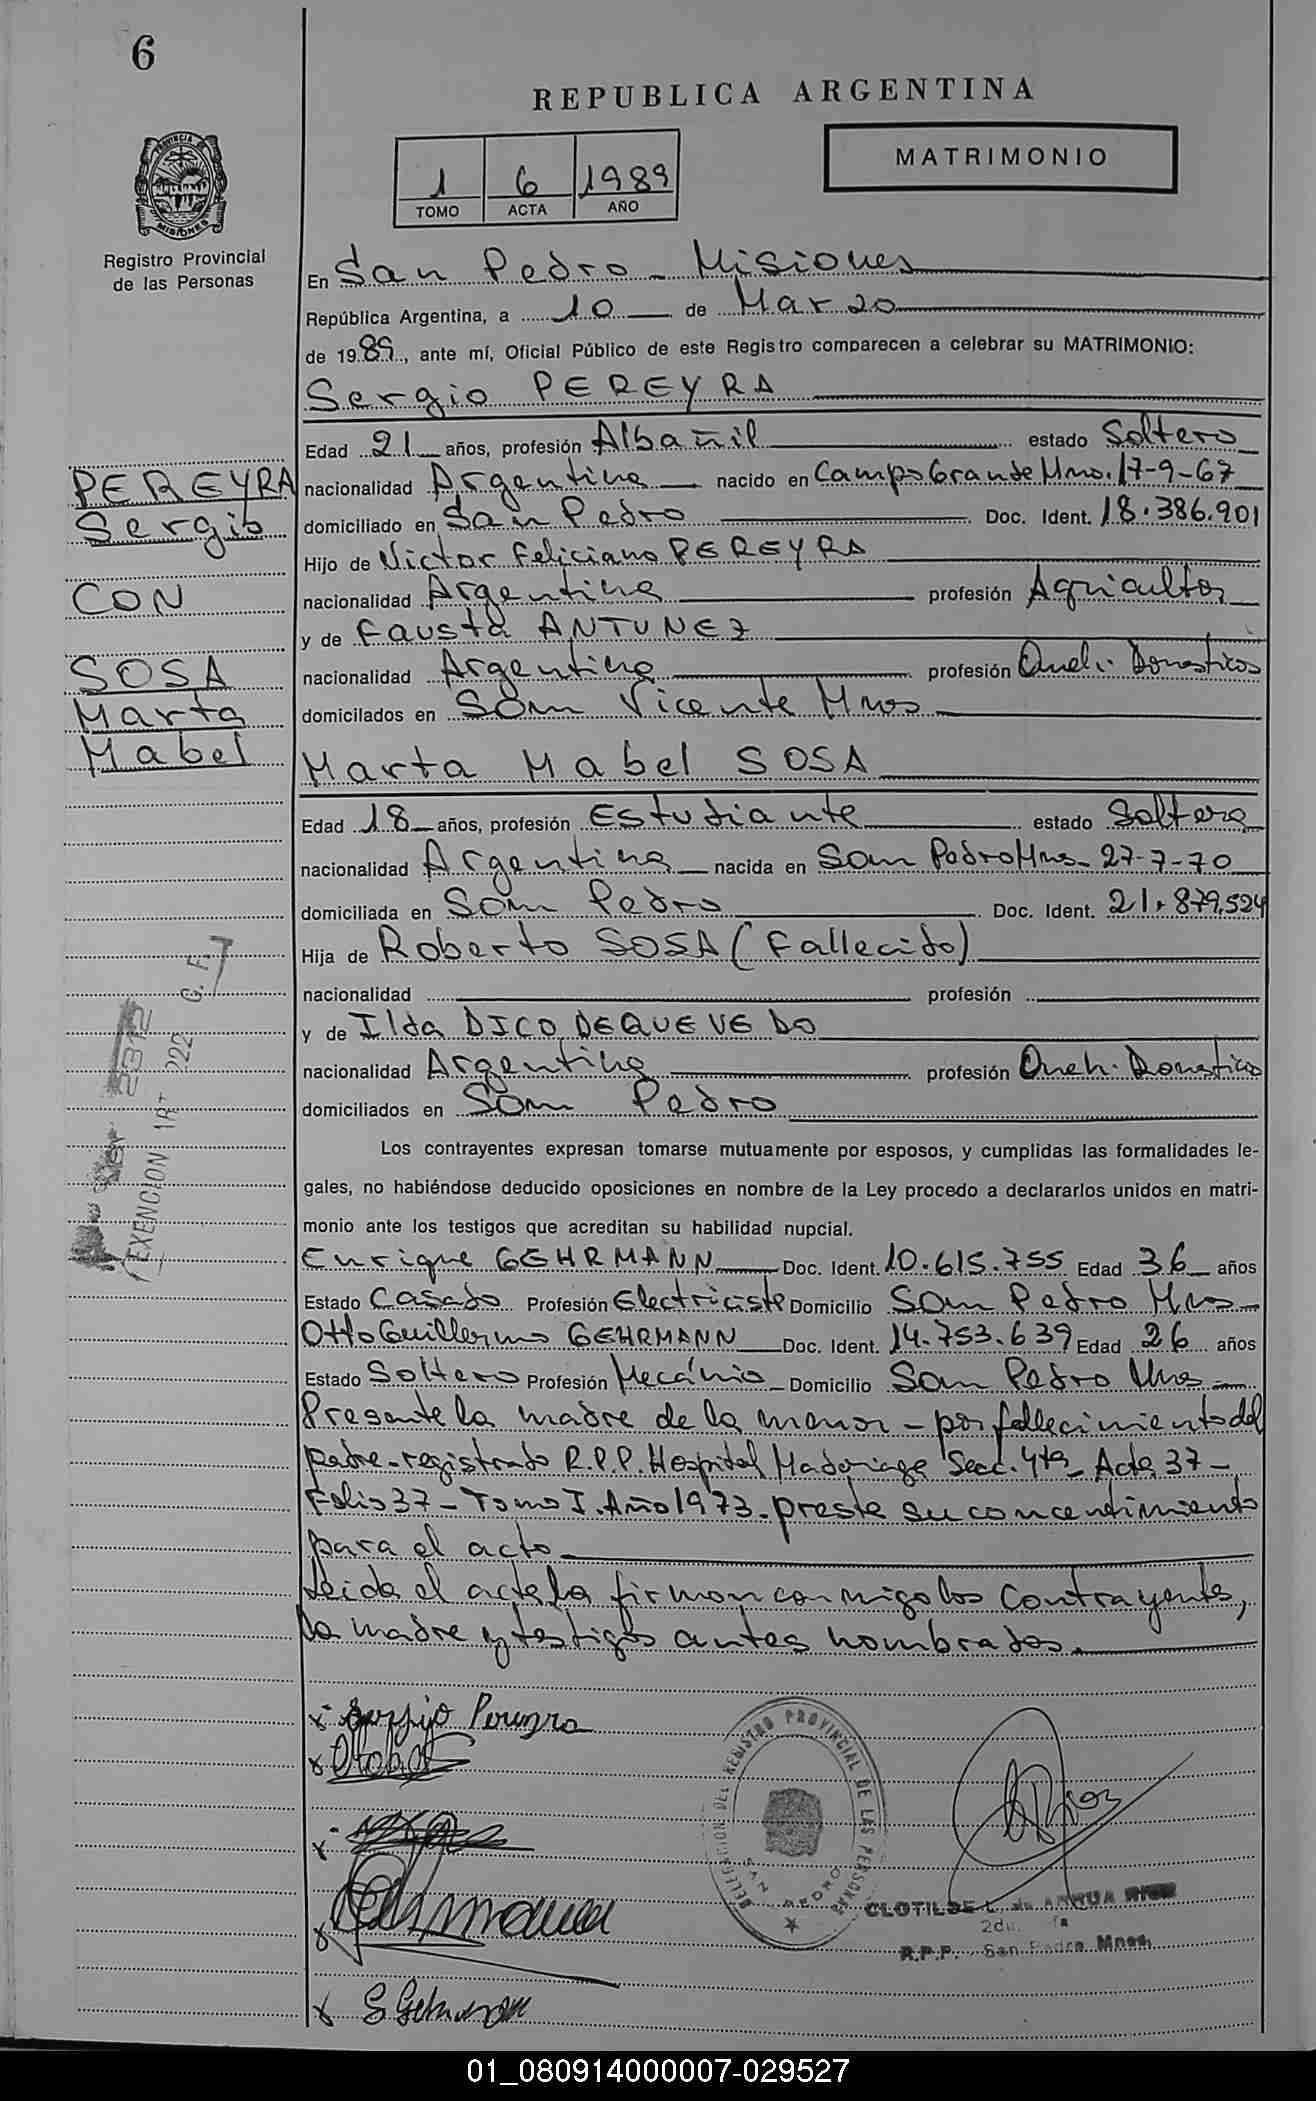 6
REPUBLICA ARGENTINA
PROVINCIA DE
MISIONES
MATRIMONIO
1 6 1989
TOMO ACTA AÑO
Registro Provincial
de las Personas
En San Pedro - Misiones
República Argentina, a 10 de Marzo
de 1989, ante mí, Oficial Público de este Registro comparecen a celebrar su MATRIMONIO:
Sergio PEREYRA
Edad 21 años, profesión Albañil estado Soltero
PEREYRA
nacionalidad Argentina nacido en Campo Grande Mnes. 17-9-67
Sergio
domiciliado en San Pedro Doc. Ident. 18.386.901
Hijo de Victor Feliciano PEREYRA
CON
nacionalidad Argentina profesión Agricultor
y de Fausta ANTUNEZ
SOSA
nacionalidad Argentina profesión Queh. Domesticos
Marta
domicilados en San Vicente Mnes
Mabel
Marta Mabel SOSA
Edad 18 años, profesión Estudiante estado Soltera
nacionalidad Argentina nacida en San Pedro Mnes- 27-7-70
domiciliada en San Pedro Doc. Ident. 21.879.524
Hija de Roberto SOSA (Fallecido)
nacionalidad profesión
y de Ilda DICO DEQUEVEDO
nacionalidad Argentina profesión Queh. Domestico
domiciliados en San Pedro
EXENCION 222
Los contrayentes expresan tomarse mutuamente por esposos, y cumplidas las formalidades le-
gales, no habiéndose deducido oposiciones en nombre de la Ley procedo a declararlos unidos en matri-
monio ante los testigos que acreditan su habilidad nupcial.
Enrique GEHRMANN Doc. Ident. 10.615.755 Edad 36 años
Estado Casado Profesión Electricista Domicilio San Pedro Mnes
Otto Guillermo GEHRMANN Doc. Ident. 14.753.639 Edad 26 años
Estado Soltero Profesión Mecánio Domicilio San Pedro Mnes
Presente la madre de la menor - por fallecimiento del
padre - registrado R.P.P. Hospital Madariaga Secc. 4ta - Acta 37 -
Folio 37 - Tomo I. Año 1973 - preste su concentimiento
para el acto
Leida el acta la firman conmigo los Contrayentes,
la madre y testigos antes nombrados.
x Sergijo Pereyra
x
x
x
x
DELEGACION DEL REGISTRO PROVINCIAL DE LAS PERSONAS
SAN PEDRO
CLOTILDE
R.P.P. San Pedro Mnes.
01_080914000007-029527